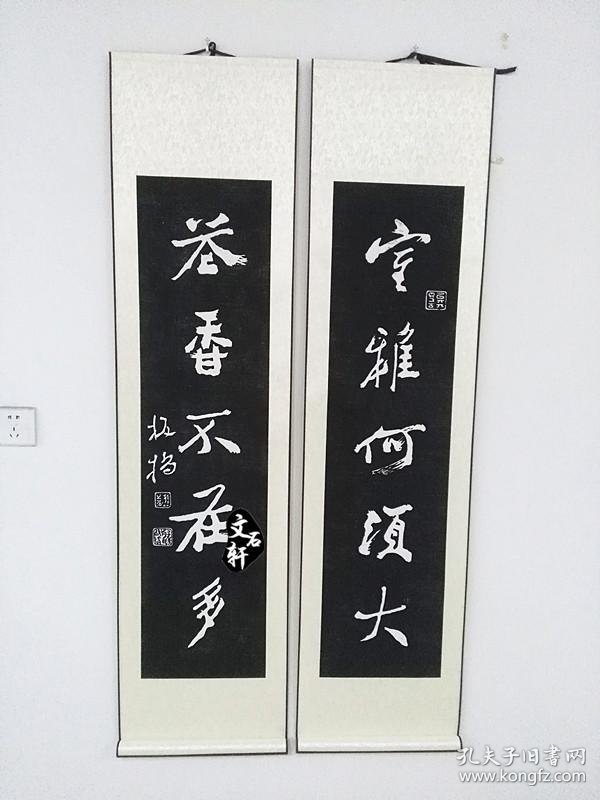 室雅何須大
花香不在多
板橋
文石轩
孔夫子旧书网
www.kongfz.com